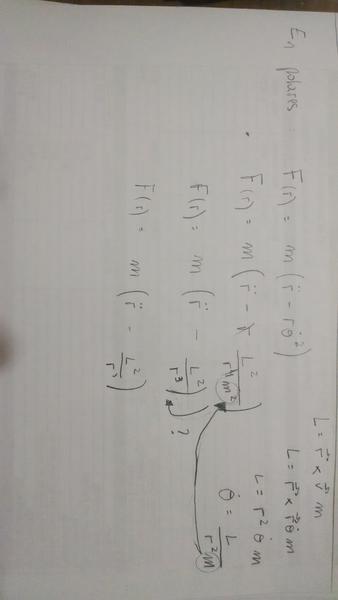 En polares: F(r) = m (r̈ - r θ̇²)
F(r) = m (r̈ - r L²/(r⁴ m²))
F(r) = m (r̈ - L²/r³) ?
F(r) = m (r̈ - L²/r³)
L = r⃗ × v⃗ m
L = r⃗ × r⃗ θ̇ m
L = r² θ̇ m
θ̇ = L/(r² m)